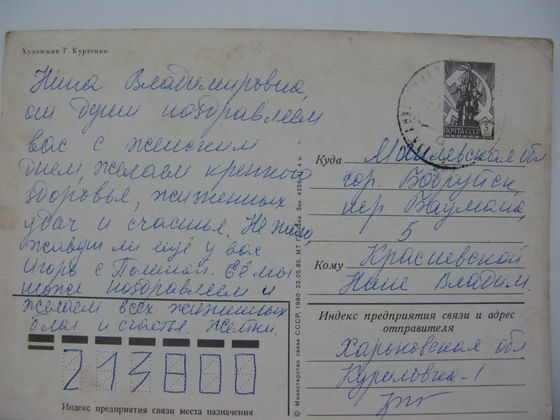 Художник Г. Куртенко
Нина Владимировна,
от души поздравляем
вас с женским
днем, желаем крепкого
здоровья, жизненных
удач и счастья. Не знаю,
живут ли ещё у вас
Игорь с Полиной. Её мы
тоже поздравляем и
желаем всех жизненных
благ и счастья.
213800
Индекс предприятия связи места назначения
© Министерство связи СССР, 1980 23.05.80. МТ Гознака. Зак.
ПОЧТА СССР
Куда Могилевская обл
гор. Бобруйск,
пер Баумана,
5
Кому Красневской
Нине Владим.
Индекс предприятия связи и адрес
отправителя
Харьковская обл
Куриловка-1